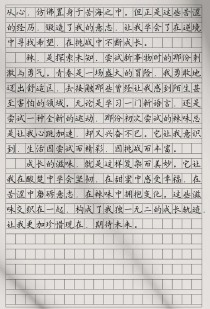 从心，仿佛置身于苦海之中。但正是这些苦涩
的经历，锻造了我的意志，让我学会了在逆境
中寻找希望，在挑战中不断成长。
辣，是探索未知、尝试新事物时的那份刺
激与勇气。青春是一场盛大的冒险，我勇敢地
迈出舒适区，去接触那些曾经让我感到陌生甚
至害怕的领域。无论是学习一门新语言，还是
尝试一种全新的运动，那份初次尝试的辣味总
是让我心跳加速，却又兴奋不已。它让我意识
到，生活因尝试而精彩，因挑战而丰富。
成长的滋味，就是这样复杂而美妙。它让
我在酸楚中学会坚韧，在甜蜜中感受幸福，在
苦涩中磨砺意志，在辣味中拥抱变化。这些滋
味交织在一起，构成了我独一无二的成长轨迹，
让我更加珍惜现在，期待未来。